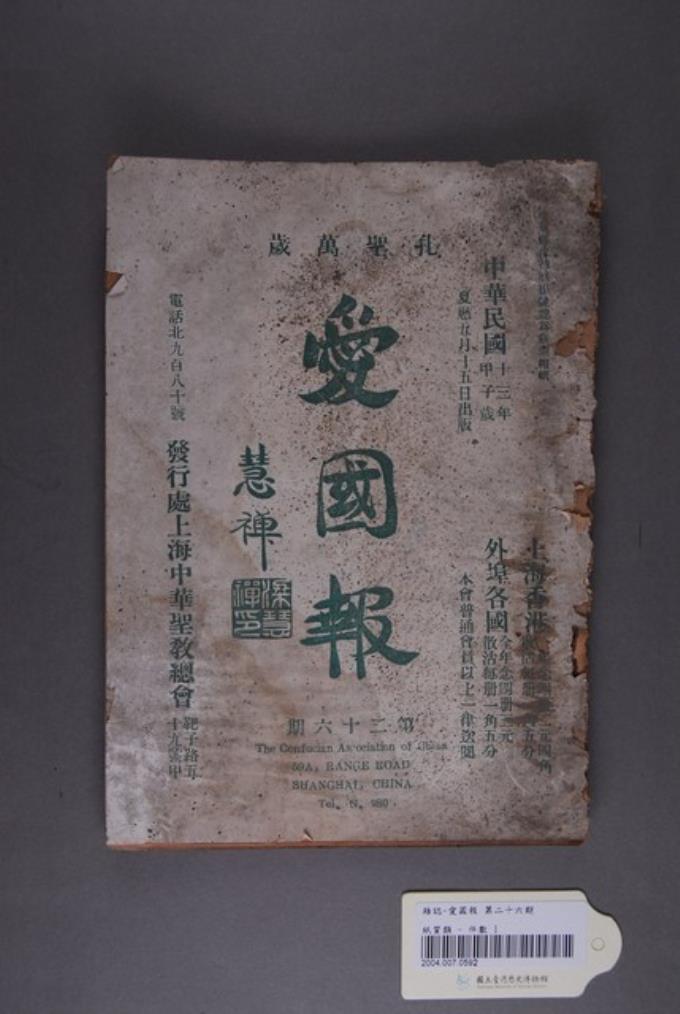 孔聖萬歲
中華民國十三年
甲子歲
夏曆五月十五日出版
上海香港
外埠各國
全年念四册三元
散沽每册一角五分
本會普通會員以上一律送閱
愛國報
慧禪
電話北九百八十號
發行處上海中華聖教總會
靶子路五十九號甲
第二十六期
The Confucian Association of China
59A, RANGE ROAD
SHANGHAI, CHINA
Tel. N. 980
雜誌-愛國報 第二十六期
紙質類 - 件數 1
2004.007.0592
國立臺灣歷史博物館